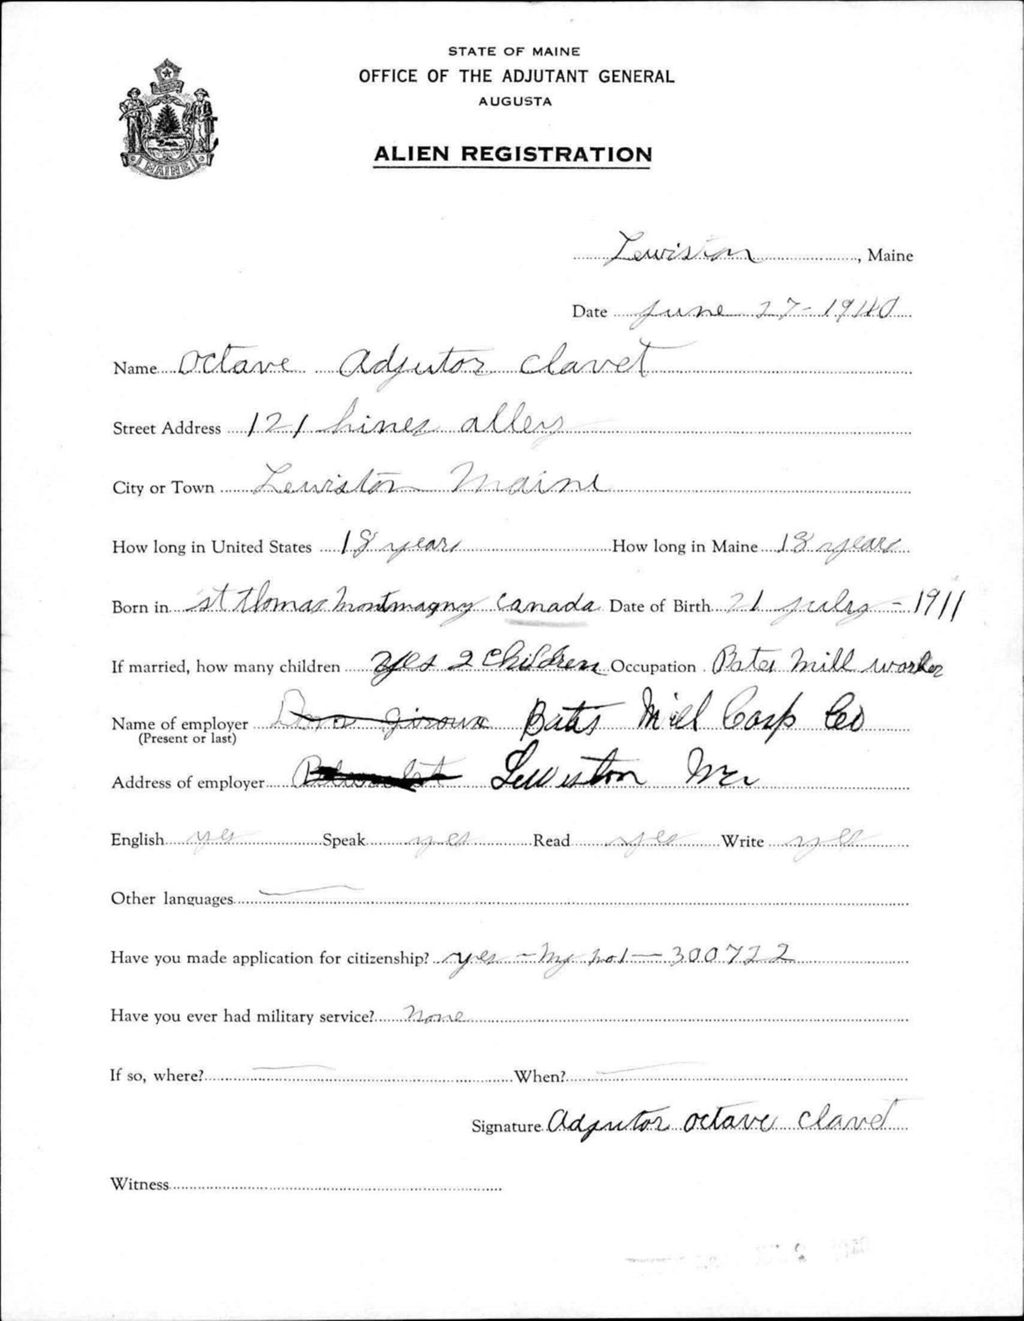 STATE OF MAINE
OFFICE OF THE ADJUTANT GENERAL
AUGUSTA
ALIEN REGISTRATION
MAINE
Lewiston, Maine
Date June 27-1940
Name Octave Adjutor Clavet
Street Address 121 hines alley
City or Town Lewiston Maine
How long in United States 18 years How long in Maine 18 years
Born in st thomas montmagny Canada Date of Birth 21 july - 1911
If married, how many children Yes 2 Children Occupation Bates Mill worker
Name of employer Giroux Bates Mill Corp Co
(Present or last)
Address of employer Lewiston Me
English yes Speak yes Read yes Write yes
Other languages
Have you made application for citizenship? yes - My no 1 - 300722
Have you ever had military service? None
If so, where? When?
Signature Adjutor Octave Clavet
Witness